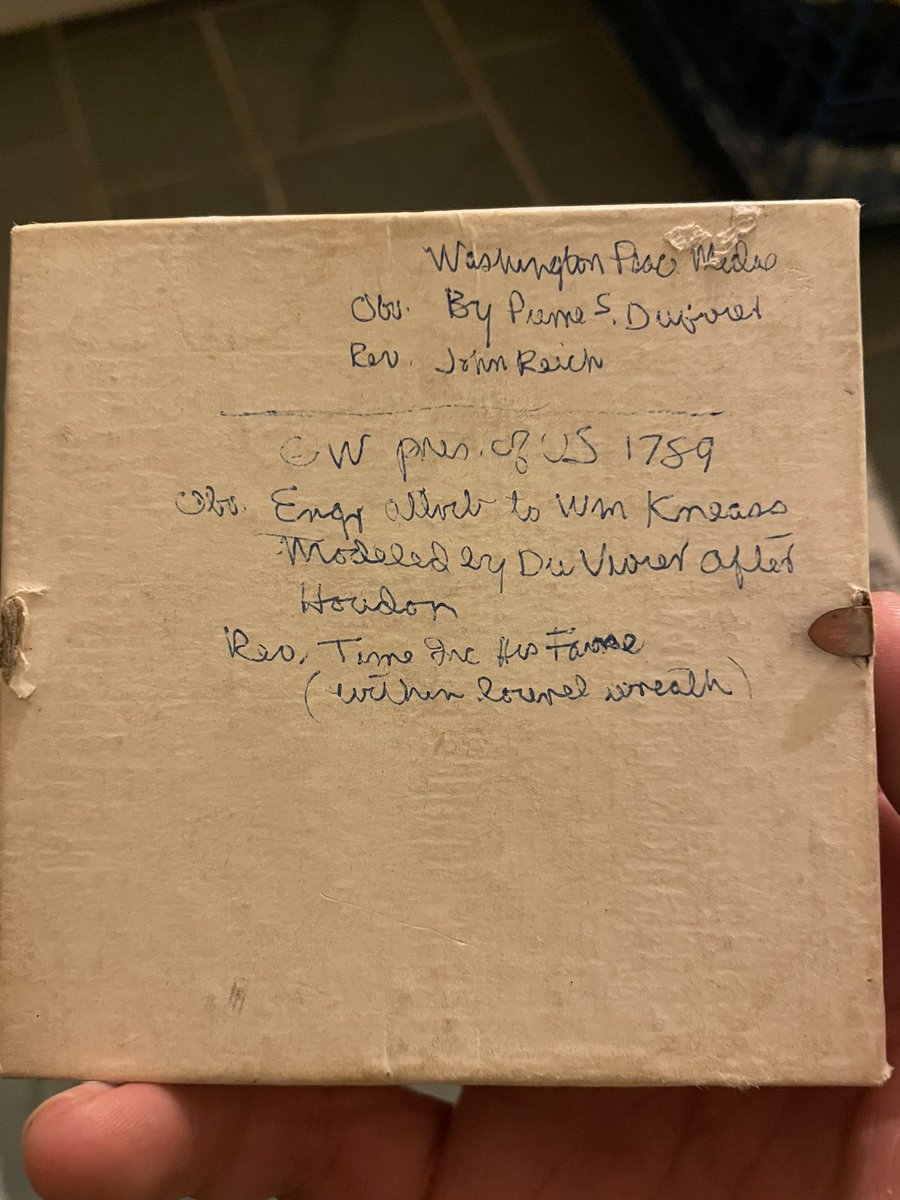 Washington Peace Medas
Obv. By Pierre S. Duvivier
Rev. John Reich
GW pres. of US 1789
Obv. Engr attrib to Wm Kneass
Modeled by Du Vivier after
Houdon
Rev. Time Inc His Fame
(within lourel wreath)